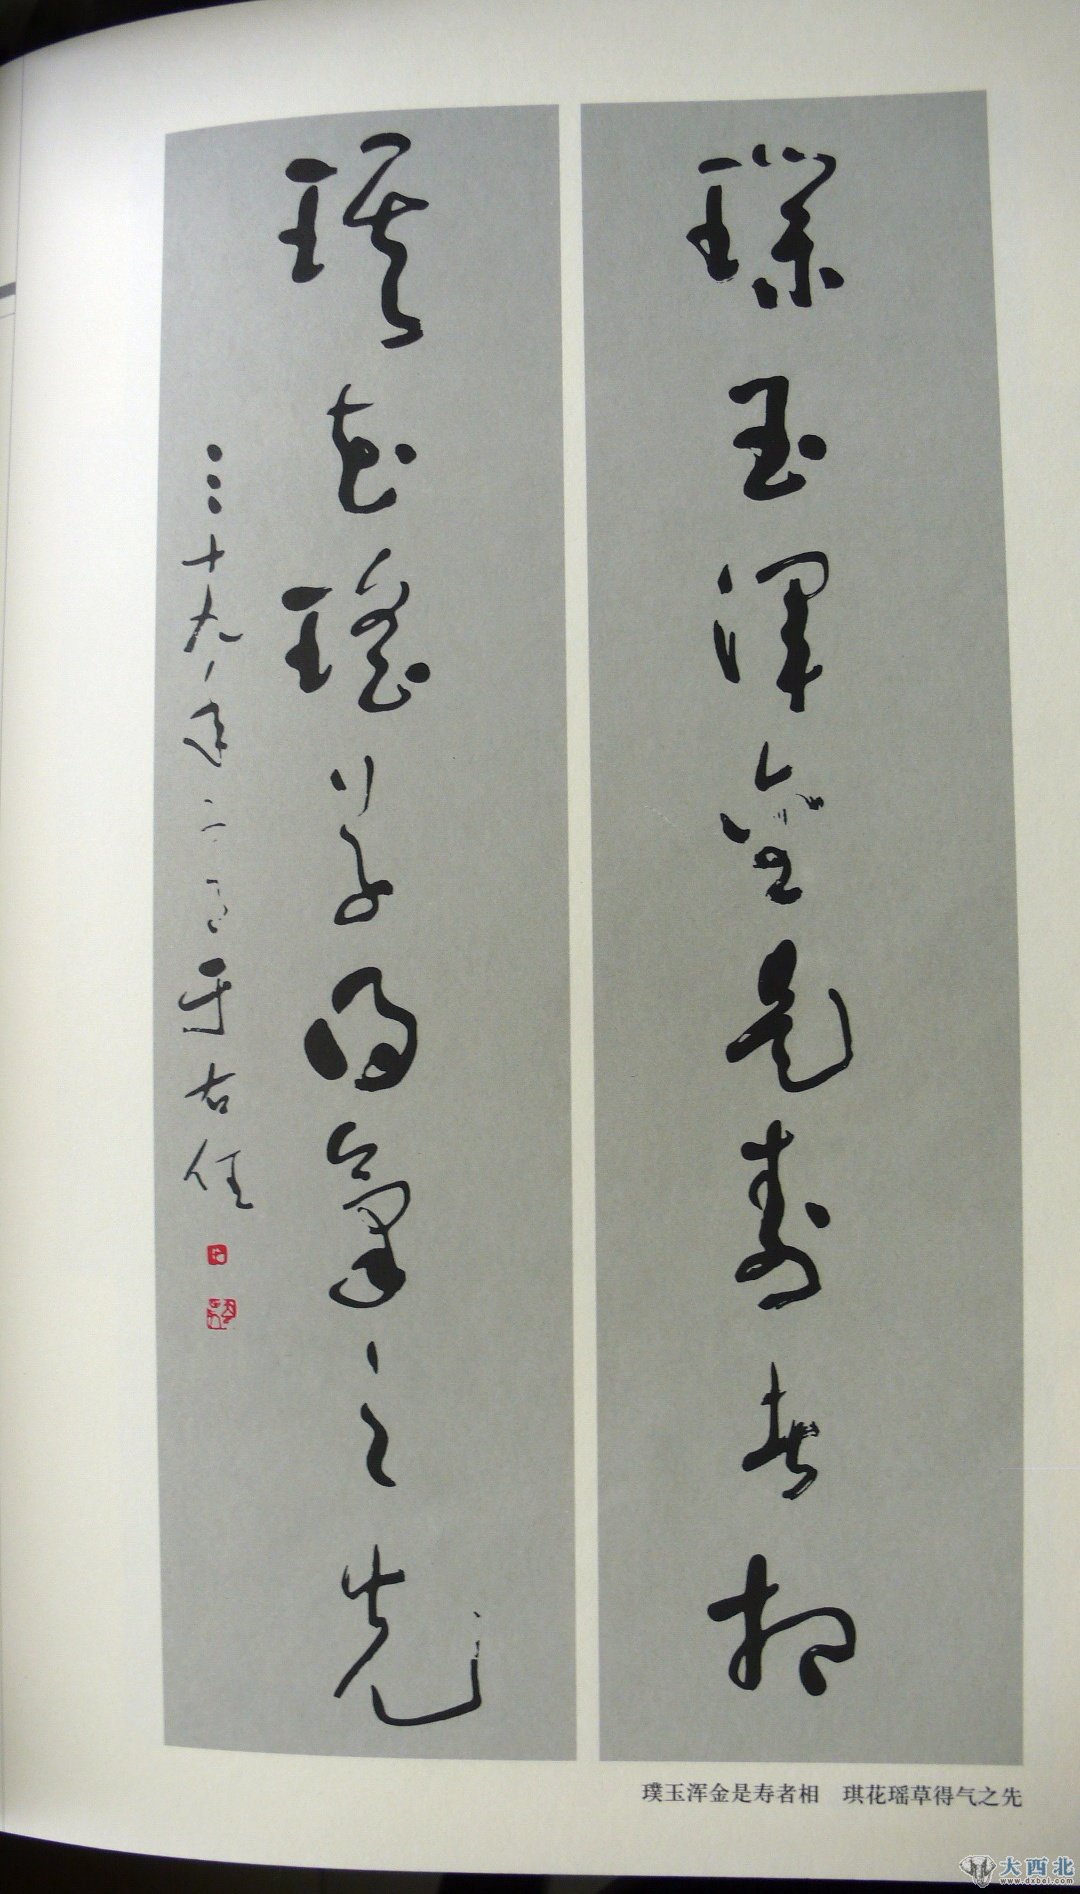 璞玉渾金是壽者相
琪花瑤草得氣之先
三十九年二月于右任
璞玉浑金是寿者相　琪花瑶草得气之先
大西北
www.dxbei.com